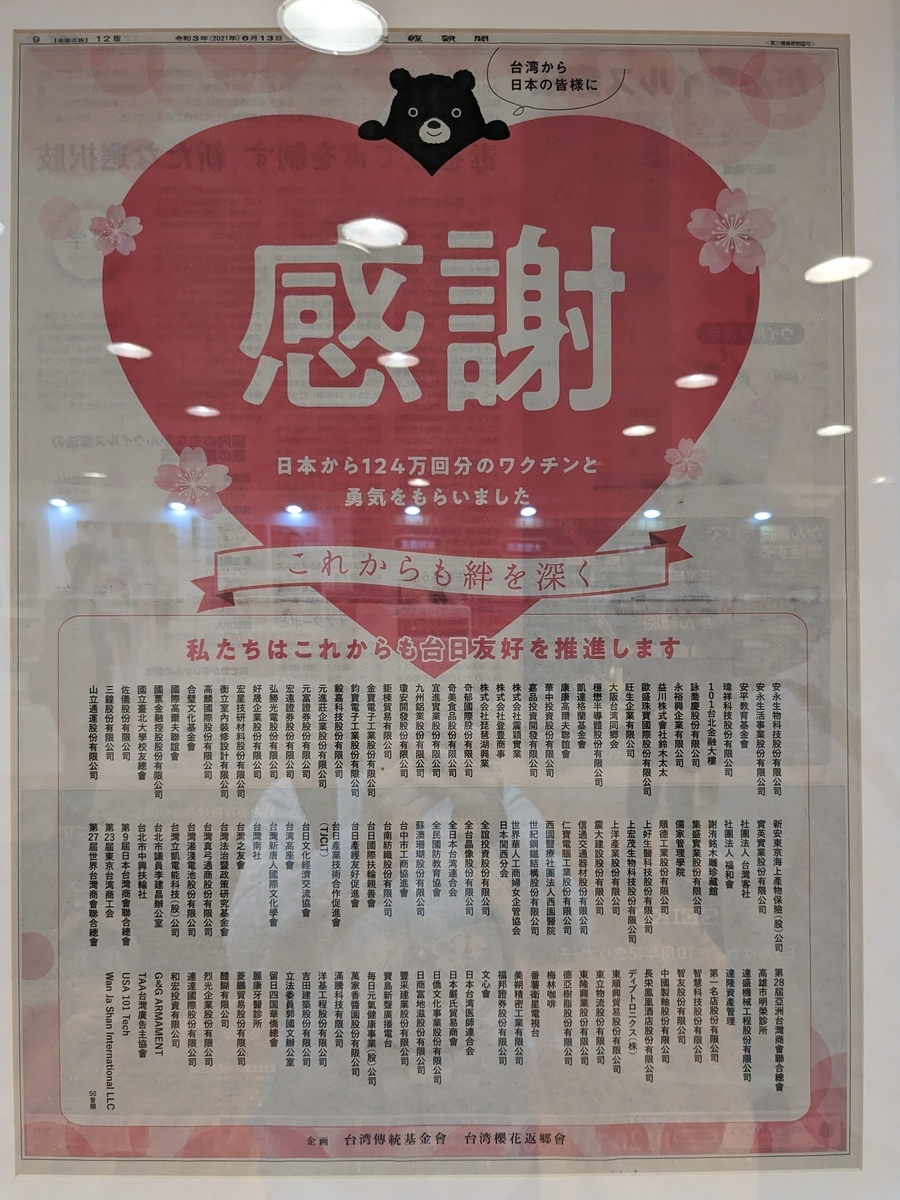 9 【全面広告】 12版 令和3年(2021年)6月13日 經 新 聞
〈第三種郵便物認可〉
台湾から
日本の皆様に
感謝
日本から124万回分のワクチンと
勇気をもらいました
これからも絆を深く
私たちはこれからも台日友好を推進します
安永生物科技股份有限公司
安永生活事業股份有限公司
安平教育基金會
瑋祥科技股份有限公司
101台北金融大樓
詠喬慶股份有限公司
永裕興企業有限公司
益川株式會社鈴木太太
歐盛珠寶國際股份有限公司
旺生企業有限公司
大阪台湾同郷会
穩懋半導體股份有限公司
凱達格蘭基金會
康康高爾夫聯誼會
華中投資股份有限公司
嘉品投資開發有限公司
株式会社震顕實業
株式会社登豊商事
株式会社琵琶湖興業
奇郁國際股份有限公司
奇美食品股份有限公司
宜進實業股份有限公司
九州鋁業股份有限公司
瓊安開發股份有限公司
鉅棟貿易有限公司
金寶電子工業股份有限公司
鈞寶電子工業股份有限公司
毅嘉科技股份有限公司
元進莊企業股份有限公司
元富證券股份有限公司
宏遠證券股份有限公司
弘勝光電股份有限公司
好晟企業股份有限公司
宏星技研材料股份有限公司
衡立室內裝修設計有限公司
高麟國際股份有限公司
合璧文化基金會
國際高爾夫聯誼會
國票金融控股股份有限公司
國立臺北大學校友總會
佐儀股份有限公司
三鐘股份有限公司
山立通運股份有限公司
新安東京海上產物保險(股)公司
實英實業股份有限公司
社團法人 台灣客社
社團法人 福和會
謝洧銘木雕珍藏館
集盛實業股份有限公司
儒家管理學院
順德工業股份有限公司
上好生醫科技股份有限公司
上宏茂生物科技股份有限公司
上洋產業股份有限公司
震大建設股份有限公司
信通交通器材股份有限公司
仁寶電腦工業股份有限公司
西園醫療社團法人西園醫院
世紀鋼鐵結構股份有限公司
世界華人工商婦女企管協會
日本関西分会
全誼投資股份有限公司
全台晶像股份有限公司
全日本台湾連合会
全民國防教育協會
蘇澳珊瑚股份有限公司
台中市工商協進會
台南紡織股份有限公司
台日國際扶輪親善會
台日產經友好促進會
台日產業技術合作促進會
(TJCIT)
台日文化經濟交流協會
台湾高座會
台灣新唐人國際文化學會
台灣南社
台灣之友會
台灣法治暨政策研究基金會
台灣湯淺電池股份有限公司
台灣真弓通商股份有限公司
台灣立凱電能科技(股)公司
台北市議員李建昌辦公室
台北市中興扶輪社
第9屆日本台灣商會聯合總會
第23屆東京台湾商工会
第27屆世界台灣商會聯合總會
第28屆亞洲台灣商會聯合總會
高雄市明榮診所
達盛機械工程股份有限公司
達隆資產管理
第一名店股份有限公司
智慧科技股份有限公司
智友股份有限公司
中國製釉股份有限公司
長栄鳳凰酒店股份有限公司
ディプトロニクス(株)
東順興貿易股份有限公司
東立物流股份有限公司
東隆興業股份有限公司
德亞樹脂股份有限公司
梅林咖啡
番薯衛星電視台
美朔精密工業有限公司
福邦證券股份有限公司
文心會
日本台湾医師連合会
日本嚴氏貿易商會
日僑文化事業股份有限公司
日商富地滋股份有限公司
豐采建業股份有限公司
寶島新聲廣播電台
每日元氣健康事業(股)公司
萬家香醬園股份有限公司
滿騰科技有限公司
洋基工程股份有限公司
吉田建築股份有限公司
立法委員郭國文辦公室
留日四国華僑總會
麗康牙醫診所
菱鵬貿易股份有限公司
醴醐有限公司
烈光企業股份有限公司
連達國際股份有限公司
和宏投資有限公司
G&G ARMAMENT
TAA台灣廣告主協會
USA 101 Tech
Wan Ja Shan International LLC
50音順
企画 台湾傳統基金會 台湾櫻花返郷會